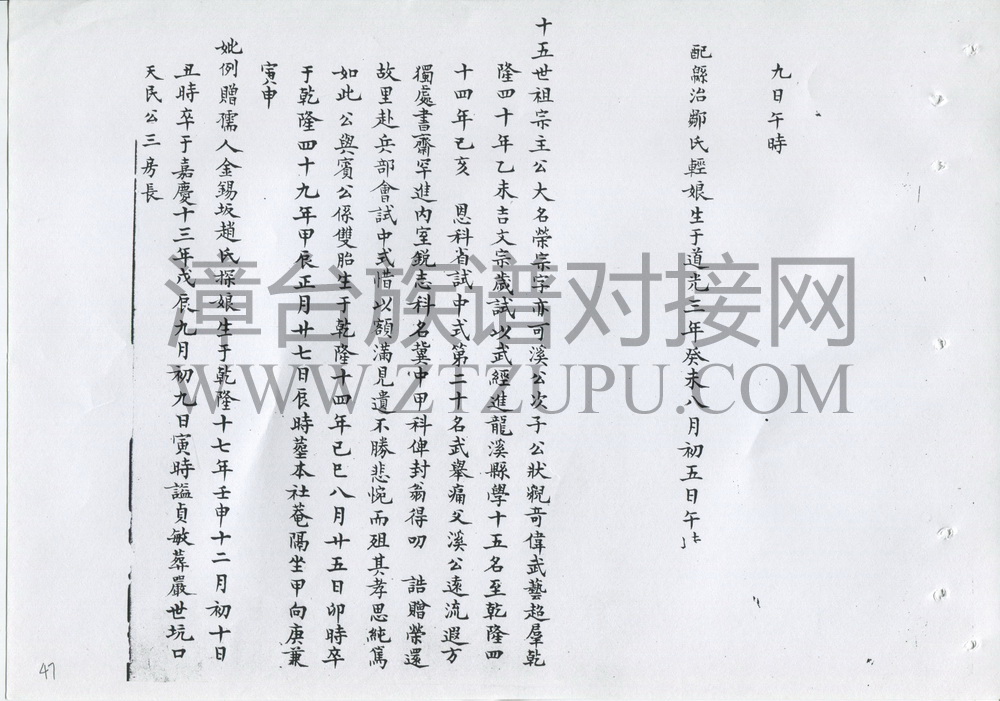 九日午時
配縣治鄭氏輕娘生于道光三年癸未八月初五日午
十五世祖宗主公大名榮宗字亦可溪公次子公狀貌奇偉武藝超羣乾
隆四十年乙未吉文宗歲試以武經進龍溪縣學十五名至乾隆四
十四年己亥 恩科省試中式第二十名武舉痛父溪公遠流遐方
獨處書齋罕進內室銳志科名冀中甲科俾封翁得叨 誥贈榮還
故里赴兵部會試中式惜以額滿見遺不勝悲惋而殂其孝思純篤
如此公與賓公係雙胎生于乾隆十四年己巳八月廿五日卯時卒
于乾隆四十九年甲辰正月廿七日辰時墓本社菴隔坐甲向庚兼
寅申
妣例贈孺人金錫坂趙氏探娘生于乾隆十七年壬申十二月初十日
丑時卒于嘉慶十三年戊辰九月初九日寅時謚貞敏葬嚴世坑口
天民公三房長
漳台族谱对接网
WWW.ZTZUPU.COM
47